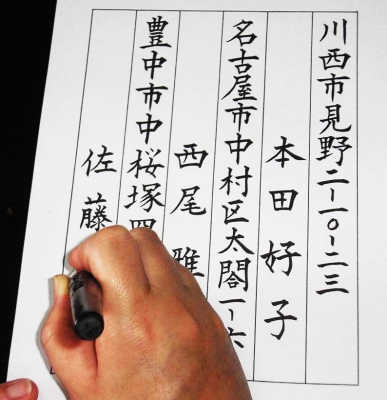 川西市見野二ー一〇ー二三
本田好子
名古屋市中村区太閤一ー六
西尾雅
豊中市中桜塚四
佐藤